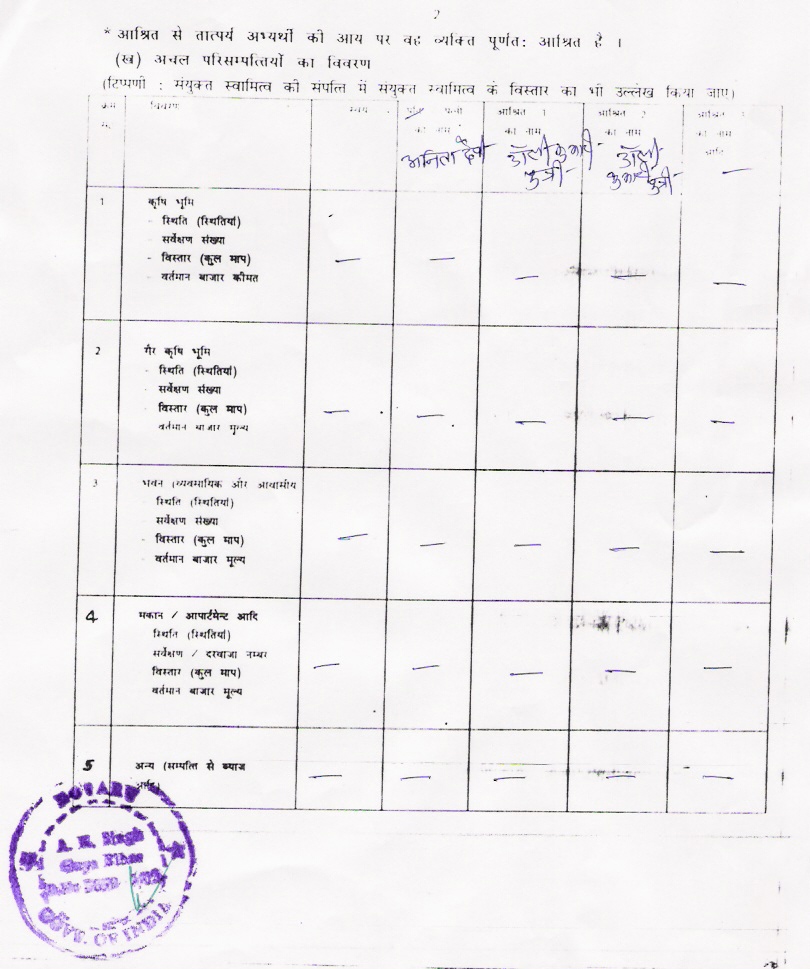 2
* आश्रित से तात्पर्य अभ्यर्थी की आय पर वह व्यक्ति पूर्णत: आश्रित है ।
(ख) अचल परिसम्पत्तियों का विवरण
(टिप्पणी : संयुक्त स्वामित्व की संपत्ति में संयुक्त स्वामित्व के विस्तार का भी उल्लेख किया जाए)
क्रम सं. विवरण स्वयं पति पत्नी का नाम आश्रित 1 का नाम आश्रित 2 का नाम आश्रित का नाम आदि
अनिता देवी डॉली कुमारी पुत्री डॉली कुमारी पुत्री —
1 कृषि भूमि
- स्थिति (स्थितियां)
- सर्वेक्षण संख्या
- विस्तार (कुल माप) — — — — —
- वर्तमान बाजार कीमत
2 गैर कृषि भूमि
- स्थिति (स्थितियां)
- सर्वेक्षण संख्या
- विस्तार (कुल माप) — — — — —
वर्तमान बाजार मूल्य
3 भवन (व्यवसायिक और आवासीय
- स्थिति (स्थितियां)
- सर्वेक्षण संख्या
- विस्तार (कुल माप) — — — — —
- वर्तमान बाजार मूल्य
4 मकान / आपार्टमेन्ट आदि
स्थिति (स्थितियां)
सर्वेक्षण / दरवाजा नम्बर
विस्तार (कुल माप) — — — — —
वर्तमान बाजार मूल्य
5 अन्य (सम्पत्ति से ब्याज — — — — —
NOTARY
A. K. Singh
Gaya Bihar
GOVE. OF INDIA